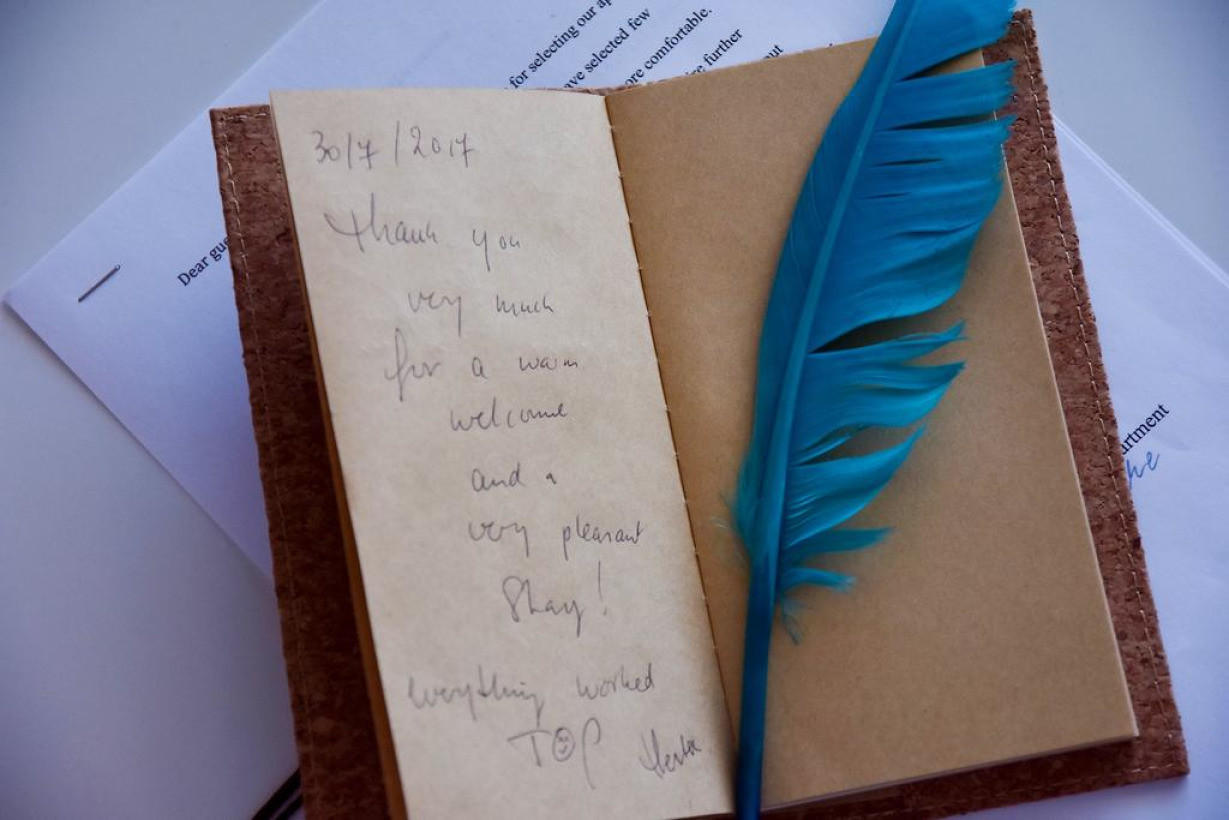 for selecting our ap
ave selected few
ore comfortable.
further
out
Dear gue
30/7/2017
Thank you
very much
for a warm
welcome
and a
very pleasant
Stay!
everything worked
TOP
artment